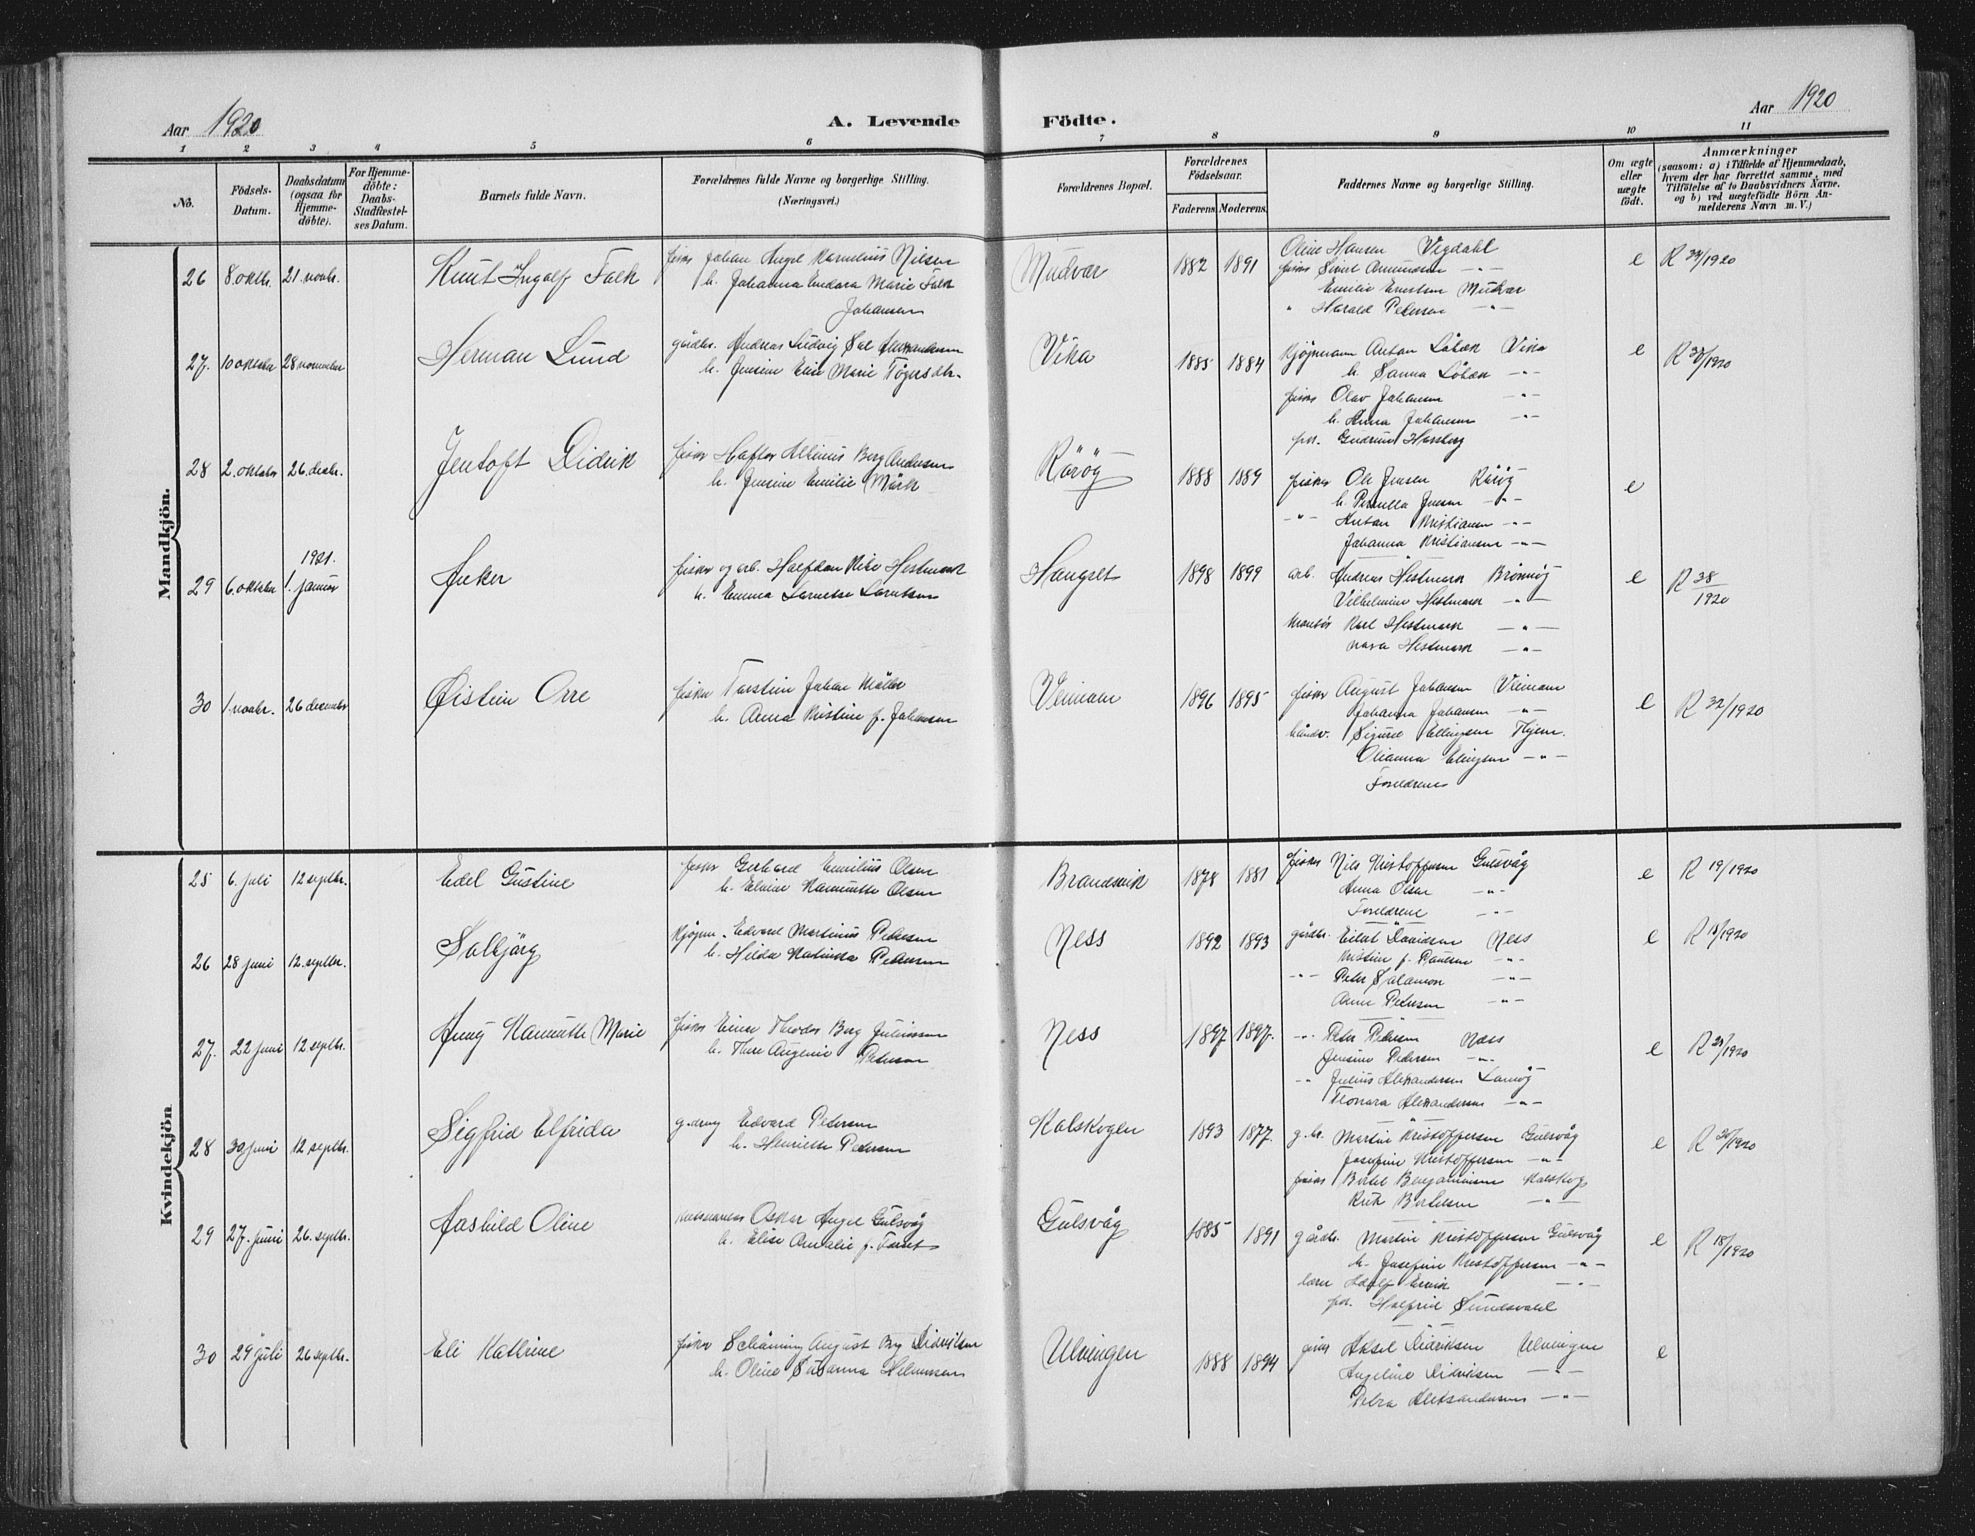 Aar 1920
A. Levende Födte.
Aar 1920
1 2 3 4 5 6 7 8 9 10 11
No.
Födsels-Datum.
Daabsdatum (ogsaa for Hjemme-döbte).
For Hjemme-döbte: Daabs-Stadfæstel-ses Datum.
Barnets fulde Navn.
Forældrenes fulde Navne og borgerlige Stilling. (Næringsvei.)
Forældrenes Bopæl.
Forældrenes Födselsaar.
Faderens. Moderens.
Faddernes Navne og borgerlige Stilling.
Om ægte eller uægte født.
Anmærkninger
(saasom: a) i Tilfælde af Hjemmedaab, hvem der har forrettet samme, med Tilföielse af to Daabsvidners Navne, og b) ved uægtefödte Börn An-melderens Navn m. V.)
Mandkjön.
26 8 oktbr. 21. novbr. Knut Ingolf Falk
fisker Johan Angel Kornelius Nilsen
h. Johanna Indara Marie Falk
Johansen
Mudvær 1882 1891
Oline Hansen Vegdahl
fisker Sivert Amundsen -"-
Emilie Erntsen Mudvær
" Harald Pedersen -"-
e R 24/1920
27. 10 oktober 28 november Herman Lund
gårdbr. Andreas Ludvig Sal Aleksandersen
h. Jensine Elise Marie Tögersdtr.
Vika 1885 1884
kjøpmann Anton Löbæk Vika
h. Sanna Löbæk -"-
fisker Olav Johansen -"-
h. Anna Johansen -"-
pk. Gudrun Hassberg
e R 30/1920
28 2. oktober 26. decbr. Jentoft Didrik
fisker Haftor Albinus Berg Andersen
h. Jensine Emilie Mörk
Rörög 1888 1889
fisker Ole Jensen Rörög
h. Pernella Jensen -"-
-"- Anton Kristiansen -"-
Johanna Kristiansen -"-
e
29 6. oktober 1921. 1. januar Anker
fisker og arb. Halfdan Riise Hestmark
h. Emma Larntsen
Hangset 1898 1899
arb. Andreas Hestmark Brönnög
Vilhelmine Hestmark -"-
Montör Karl Hestmark -"-
Nora Hestmark -"-
e R 38/1920
30 1. novbr. 26 december Øistein Orre
fisker Torstein Johan Möller
h. Anna Kristine f. Johansen
Veimann 1896 1895
fisker August Johansen Veimann
Johanna Johansen -"-
håndv. Sigurd Ellingsen Tilrem.
Olianna Elingsen -"-
Foreldrene
e R 32/1920
Kvindekjön
25 6. juli 12 septbr. Edel Gustine
fisker Gerhard Emilius Olsen
h. Elvine Hanmette Olsen
Brandsvik 1878 1881
fisker Nils Kristoffersen Gulsvåg
Anna Olsen -"-
Foreldrene -"-
e R 19/1920
26 28 juni 12. septbr. Solbjörg
Kjøpm. Edvard Martinus Pedersen
h. Hilda Katinka Pedersen
Ness 1892 1893
gårdbr. Eilert Davidsen Ness
Kristine f. Paulsen -"-
-"- Peter Salamon -"-
Anne Pedersen -"-
e R 18/1920
27. 22 juni 12 septbr. Anny Hanmette Marie
fisker Einar Theodor Berg Juliussen
h. Thore Augenie Pedersen
Ness 1897 1897.
-"- Peter Pedersen Næss
Jensine Pedersen -"-
-"- Julius Aleksandersen Lamög
Leonora Aleksandersen -"-
e R 21/1920
28 30 juni 12 septbr. Sigfrid Elfrida
g.dreng Edvard Pedersen
h. Henriette Pedersen
Kalskogen 1893 1877.
g.br. Martin Kristoffersen Gulsvåg
Josefine Kristoffersen -"-
fisker Bertel Benjaminsen Kalskog
Rut Bertelsen -"-
e R 20/1920
29 27. juni 26. septbr. Aashild Oline
Oskar Angel Gulsvåg
h. Elise Amalie f. Forset
Gulsvåg 1885 1891
gårdbr. Martin Kristoffersen Gulsvåg
h. Josefine Kristoffersen -"-
lærer Adolf -"-
pk. Halfrid Sundsvald
e R 18/1920
30 29 juli 26 septbr. Eli Kathrine
fisker Schåning August Brg Didriksen
h. Oline Johanna Helmersen
Ulvingen 1888 1894
Aksel Didriksen Ulvingen
Angeline Didriksen -"-
Petra Aleksandersen -"-
e